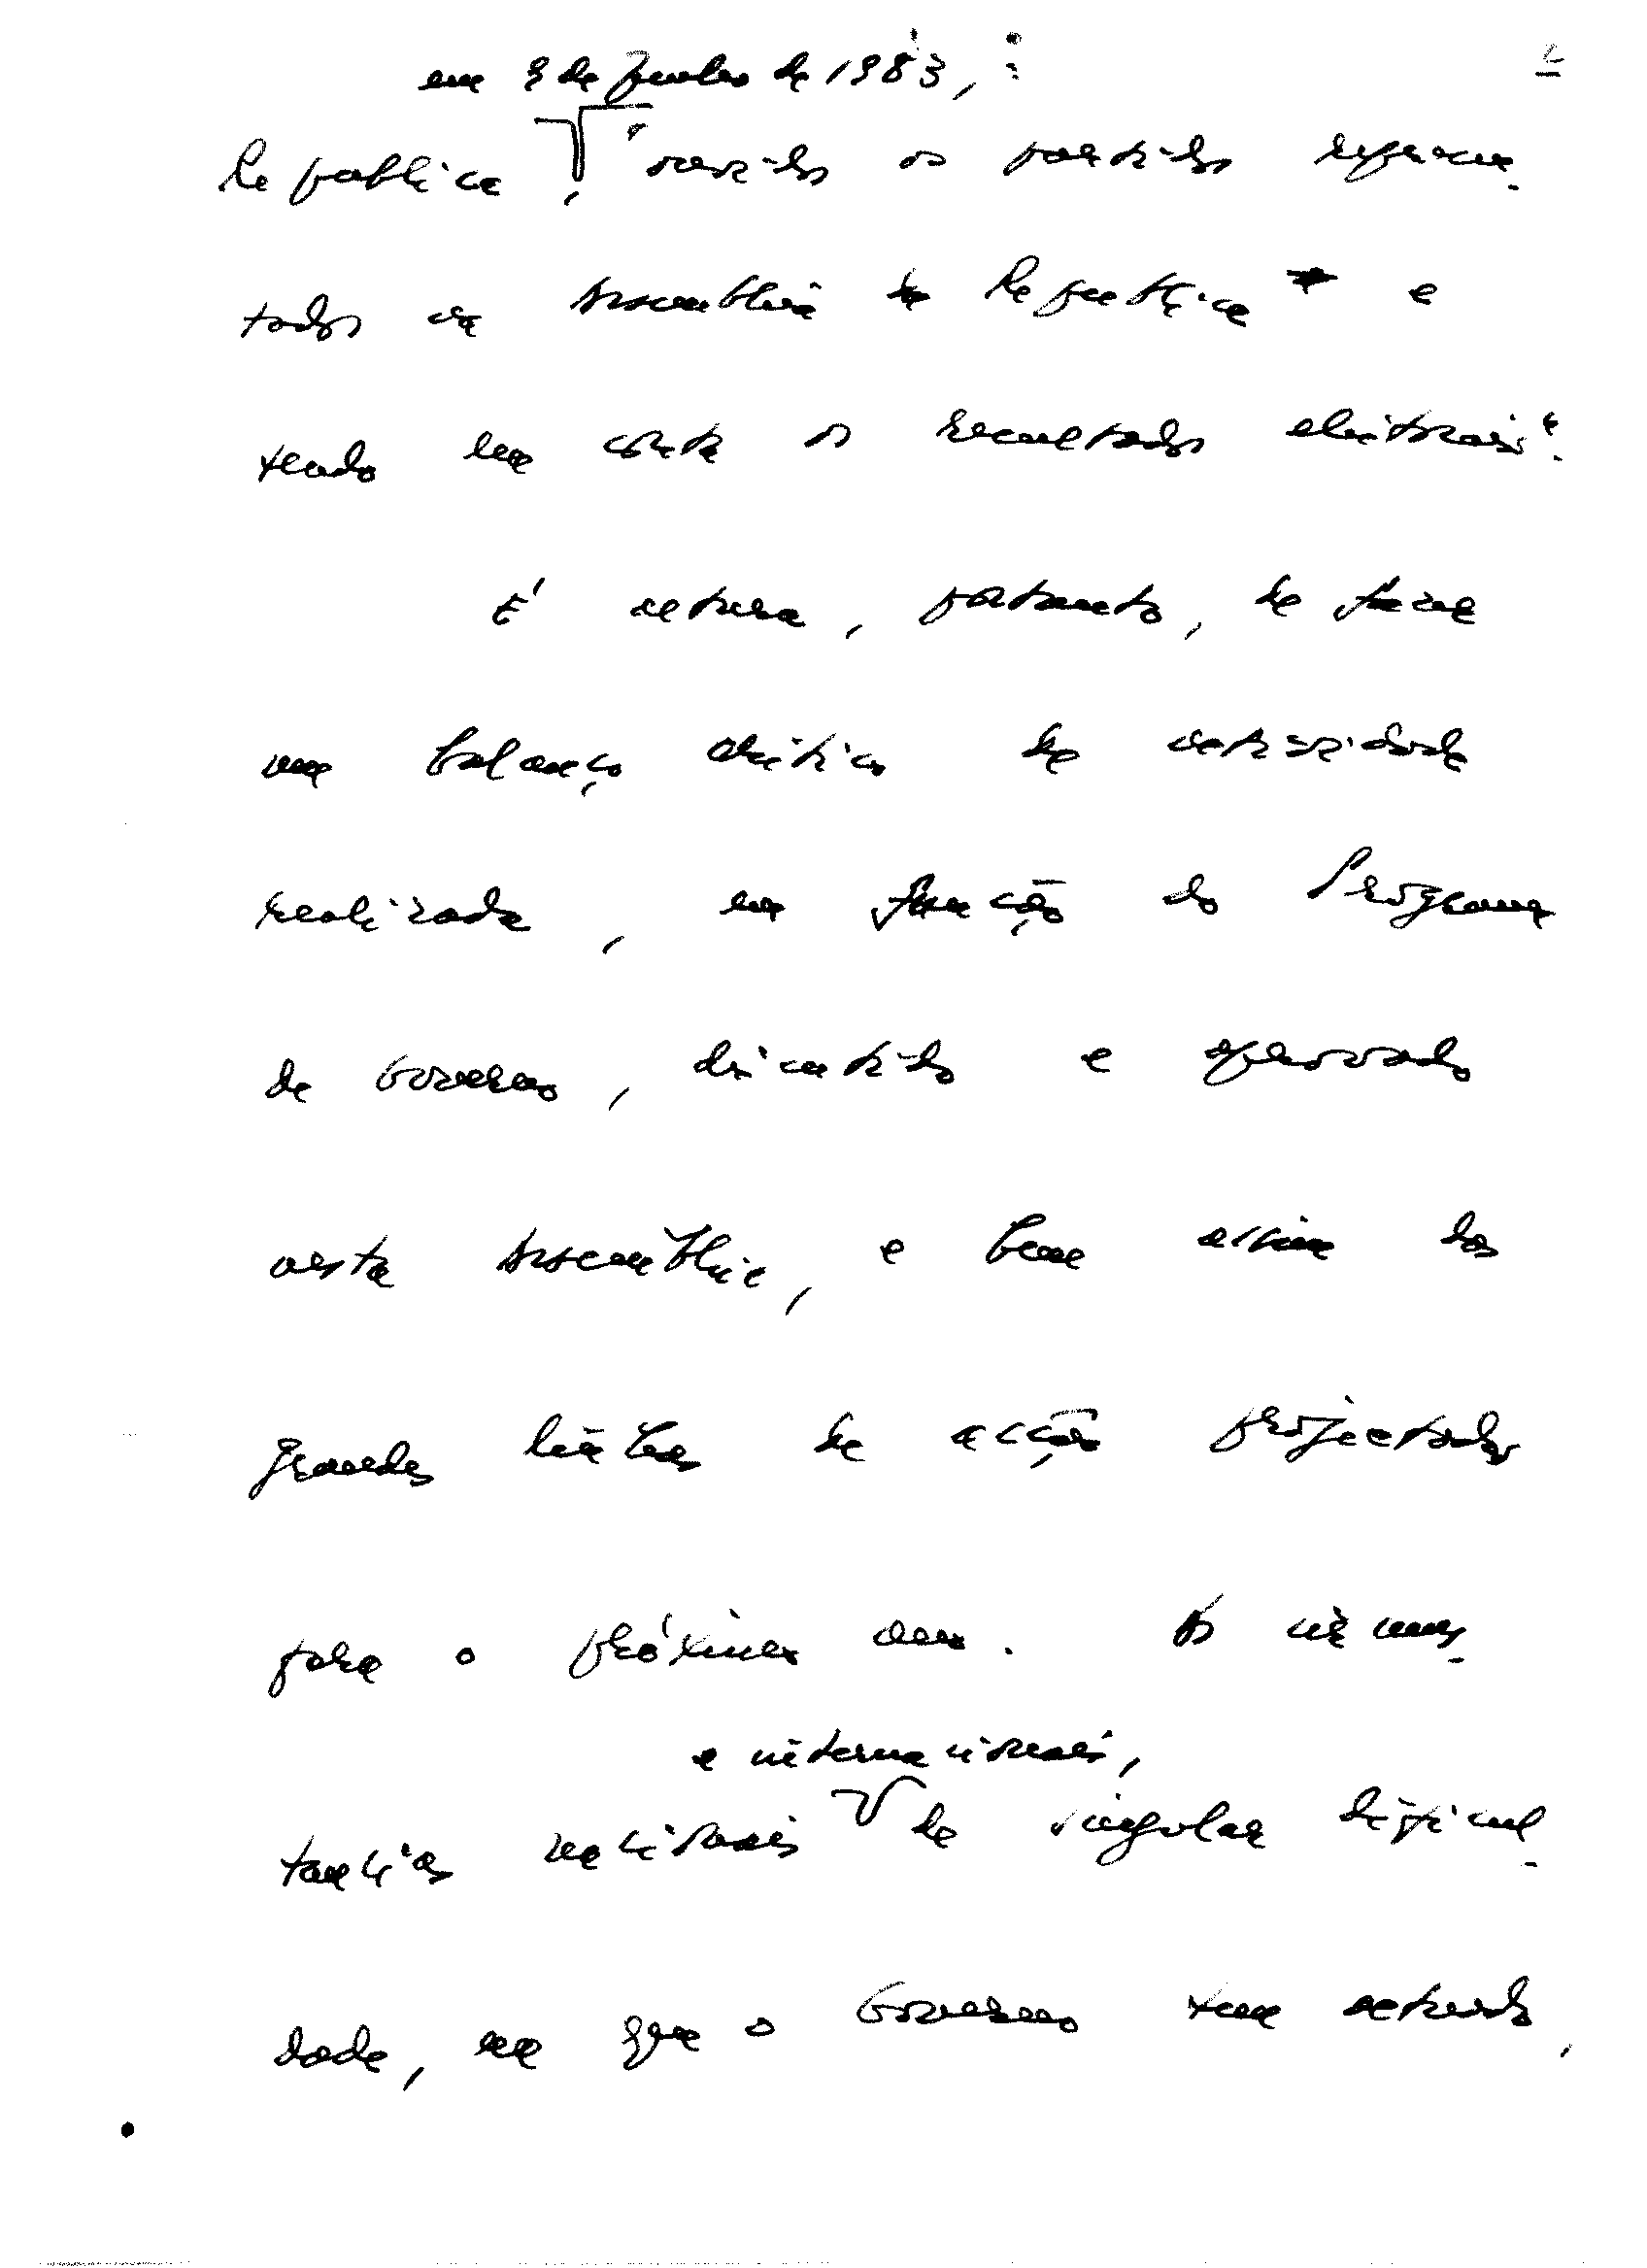 em 9 de Junho de 1983,
República, ouvidos os partidos represen-
tados na Assembleia da República e
tendo em conta os resultados eleitorais".
É altura, portanto, de fazer
um balanço crítico da actividade
realizada, em função do Programa
de Governo, discutido e aprovado
nesta Assembleia, e bem assim das
grandes linhas de acção projectadas
para o próximo ano. As circuns-
e internacionais,
tâncias nacionais de singular dificul-
dade, em que o Governo tem actuado,